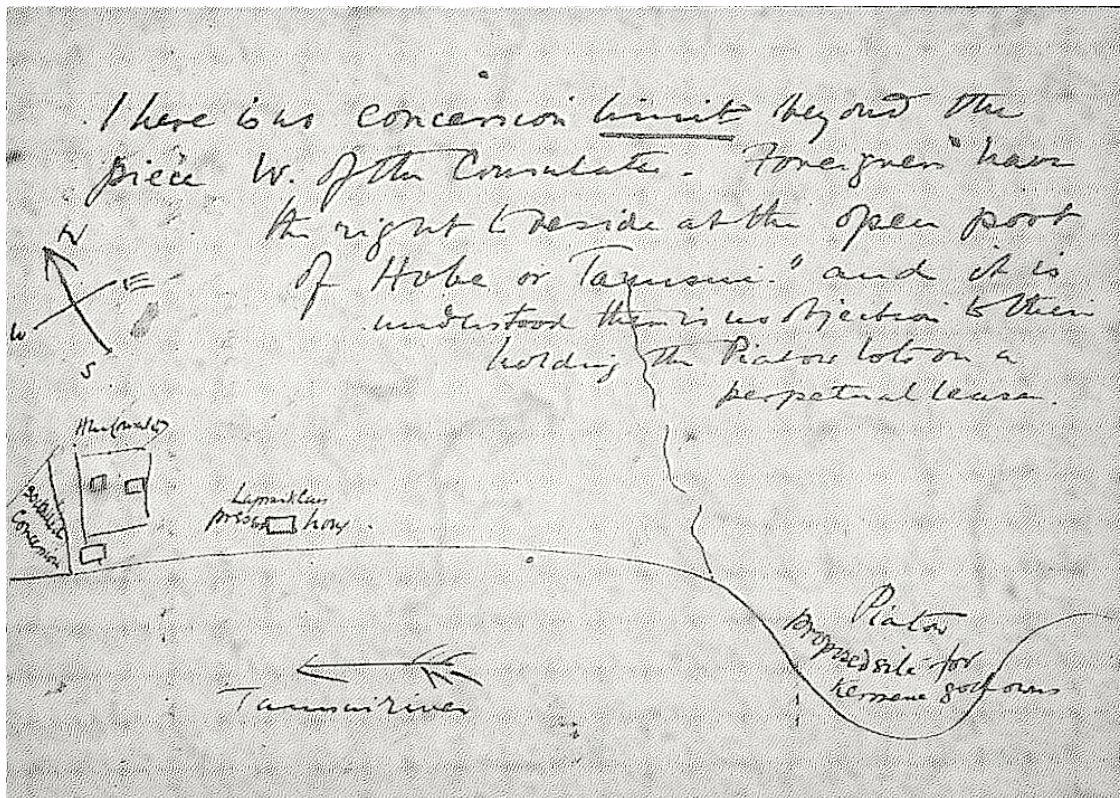 There is no concession limit beyond the
piece W. of the Consulate. "Foreigners have
the right to reside at the open port
of Hobe or Tamsui." and it is
understood there is no objection to their
holding the Piatow lots on a
perpetual lease.
N
E
W
S
so called
Concession
press house
Piatow
proposed site for
kerosene godowns
Tamsui river